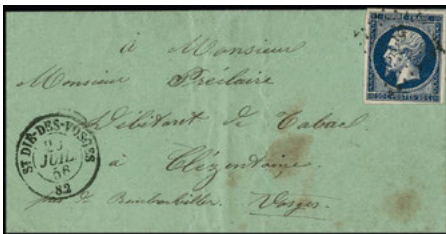 à Monsieur
Monsieur Préclaire
Débitant de Tabac
à Clézentaine
par de Rambervillers. Vosges.
ST DIE-DES-VOSGES
JUIL
58
(82)
EMPIRE FRANC